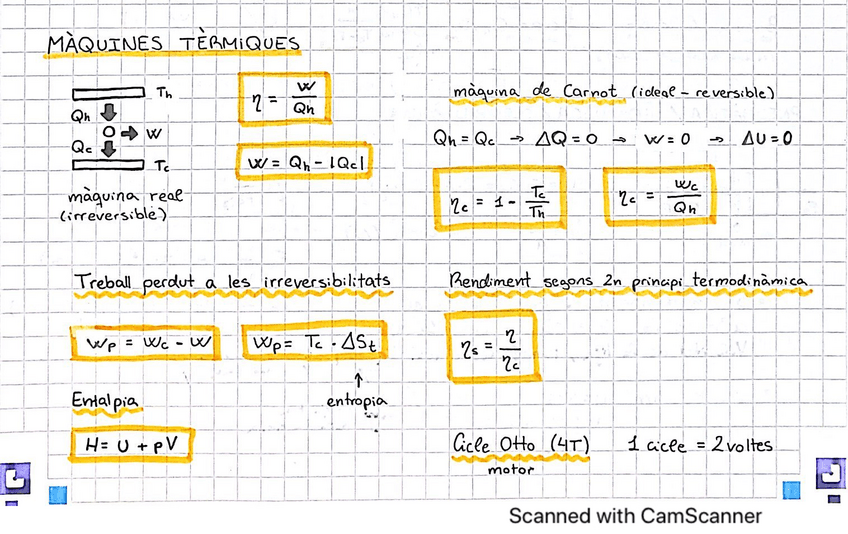 MÀQUINES TÈRMIQUES
Th
Qh
W
Qc
Tc
màquina real
(irreversible)
η = W / Qh
W = Qh - |Qc|
màquina de Carnot (ideal - reversible)
Qh = Qc → ΔQ = 0 → W = 0 → ΔU = 0
ηc = 1 - Tc / Th
ηc = Wc / Qh
Treball perdut a les irreversibilitats
Wp = Wc - W
Wp = Tc · ΔSt
↑
entropia
Entalpia
H = U + pV
Rendiment segons 2n principi termodinàmica
ηs = η / ηc
Cicle Otto (4T)
motor
1 cicle = 2 voltes
Scanned with CamScanner